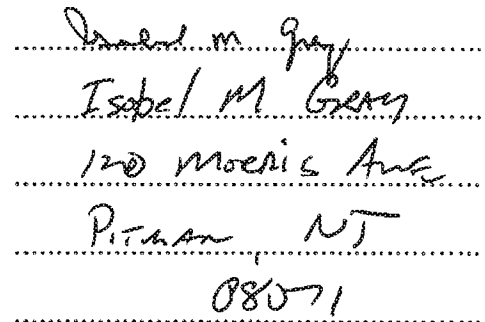 Isobel M Gray
Isobel M Gray
120 Morris Ave
Pitman, NJ
08071